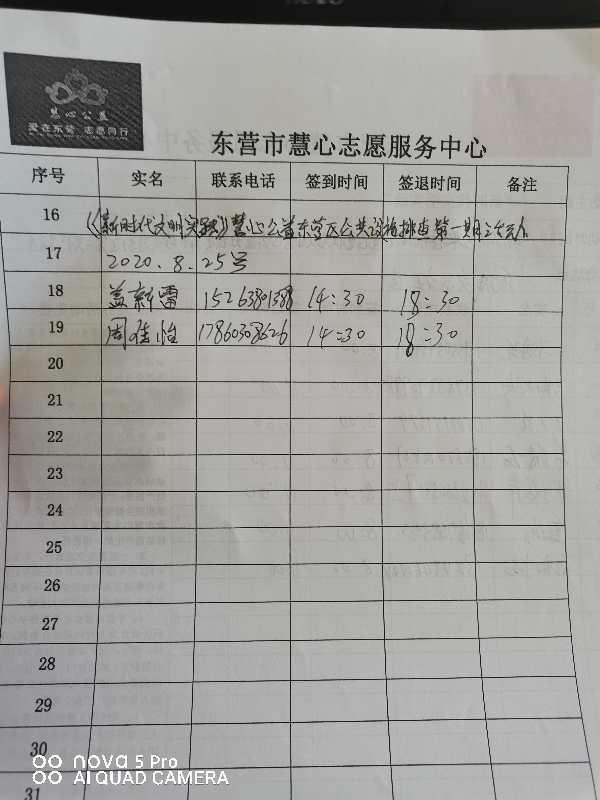 慧心公益
爱在东营 志愿同行
东营市慧心志愿服务中心
序号 实名 联系电话 签到时间 签退时间 备注
16 《新时代文明实践》慧心公益东营区公共设施排查第一期
17 2020.8.25号
18 盖新雷 15263801388 14:30 18:30
19 周佳怡 17860308626 14:30 18:30
20
21
22
23
24
25
26
27
28
29
30
31
nova 5 Pro
AI QUAD CAMERA